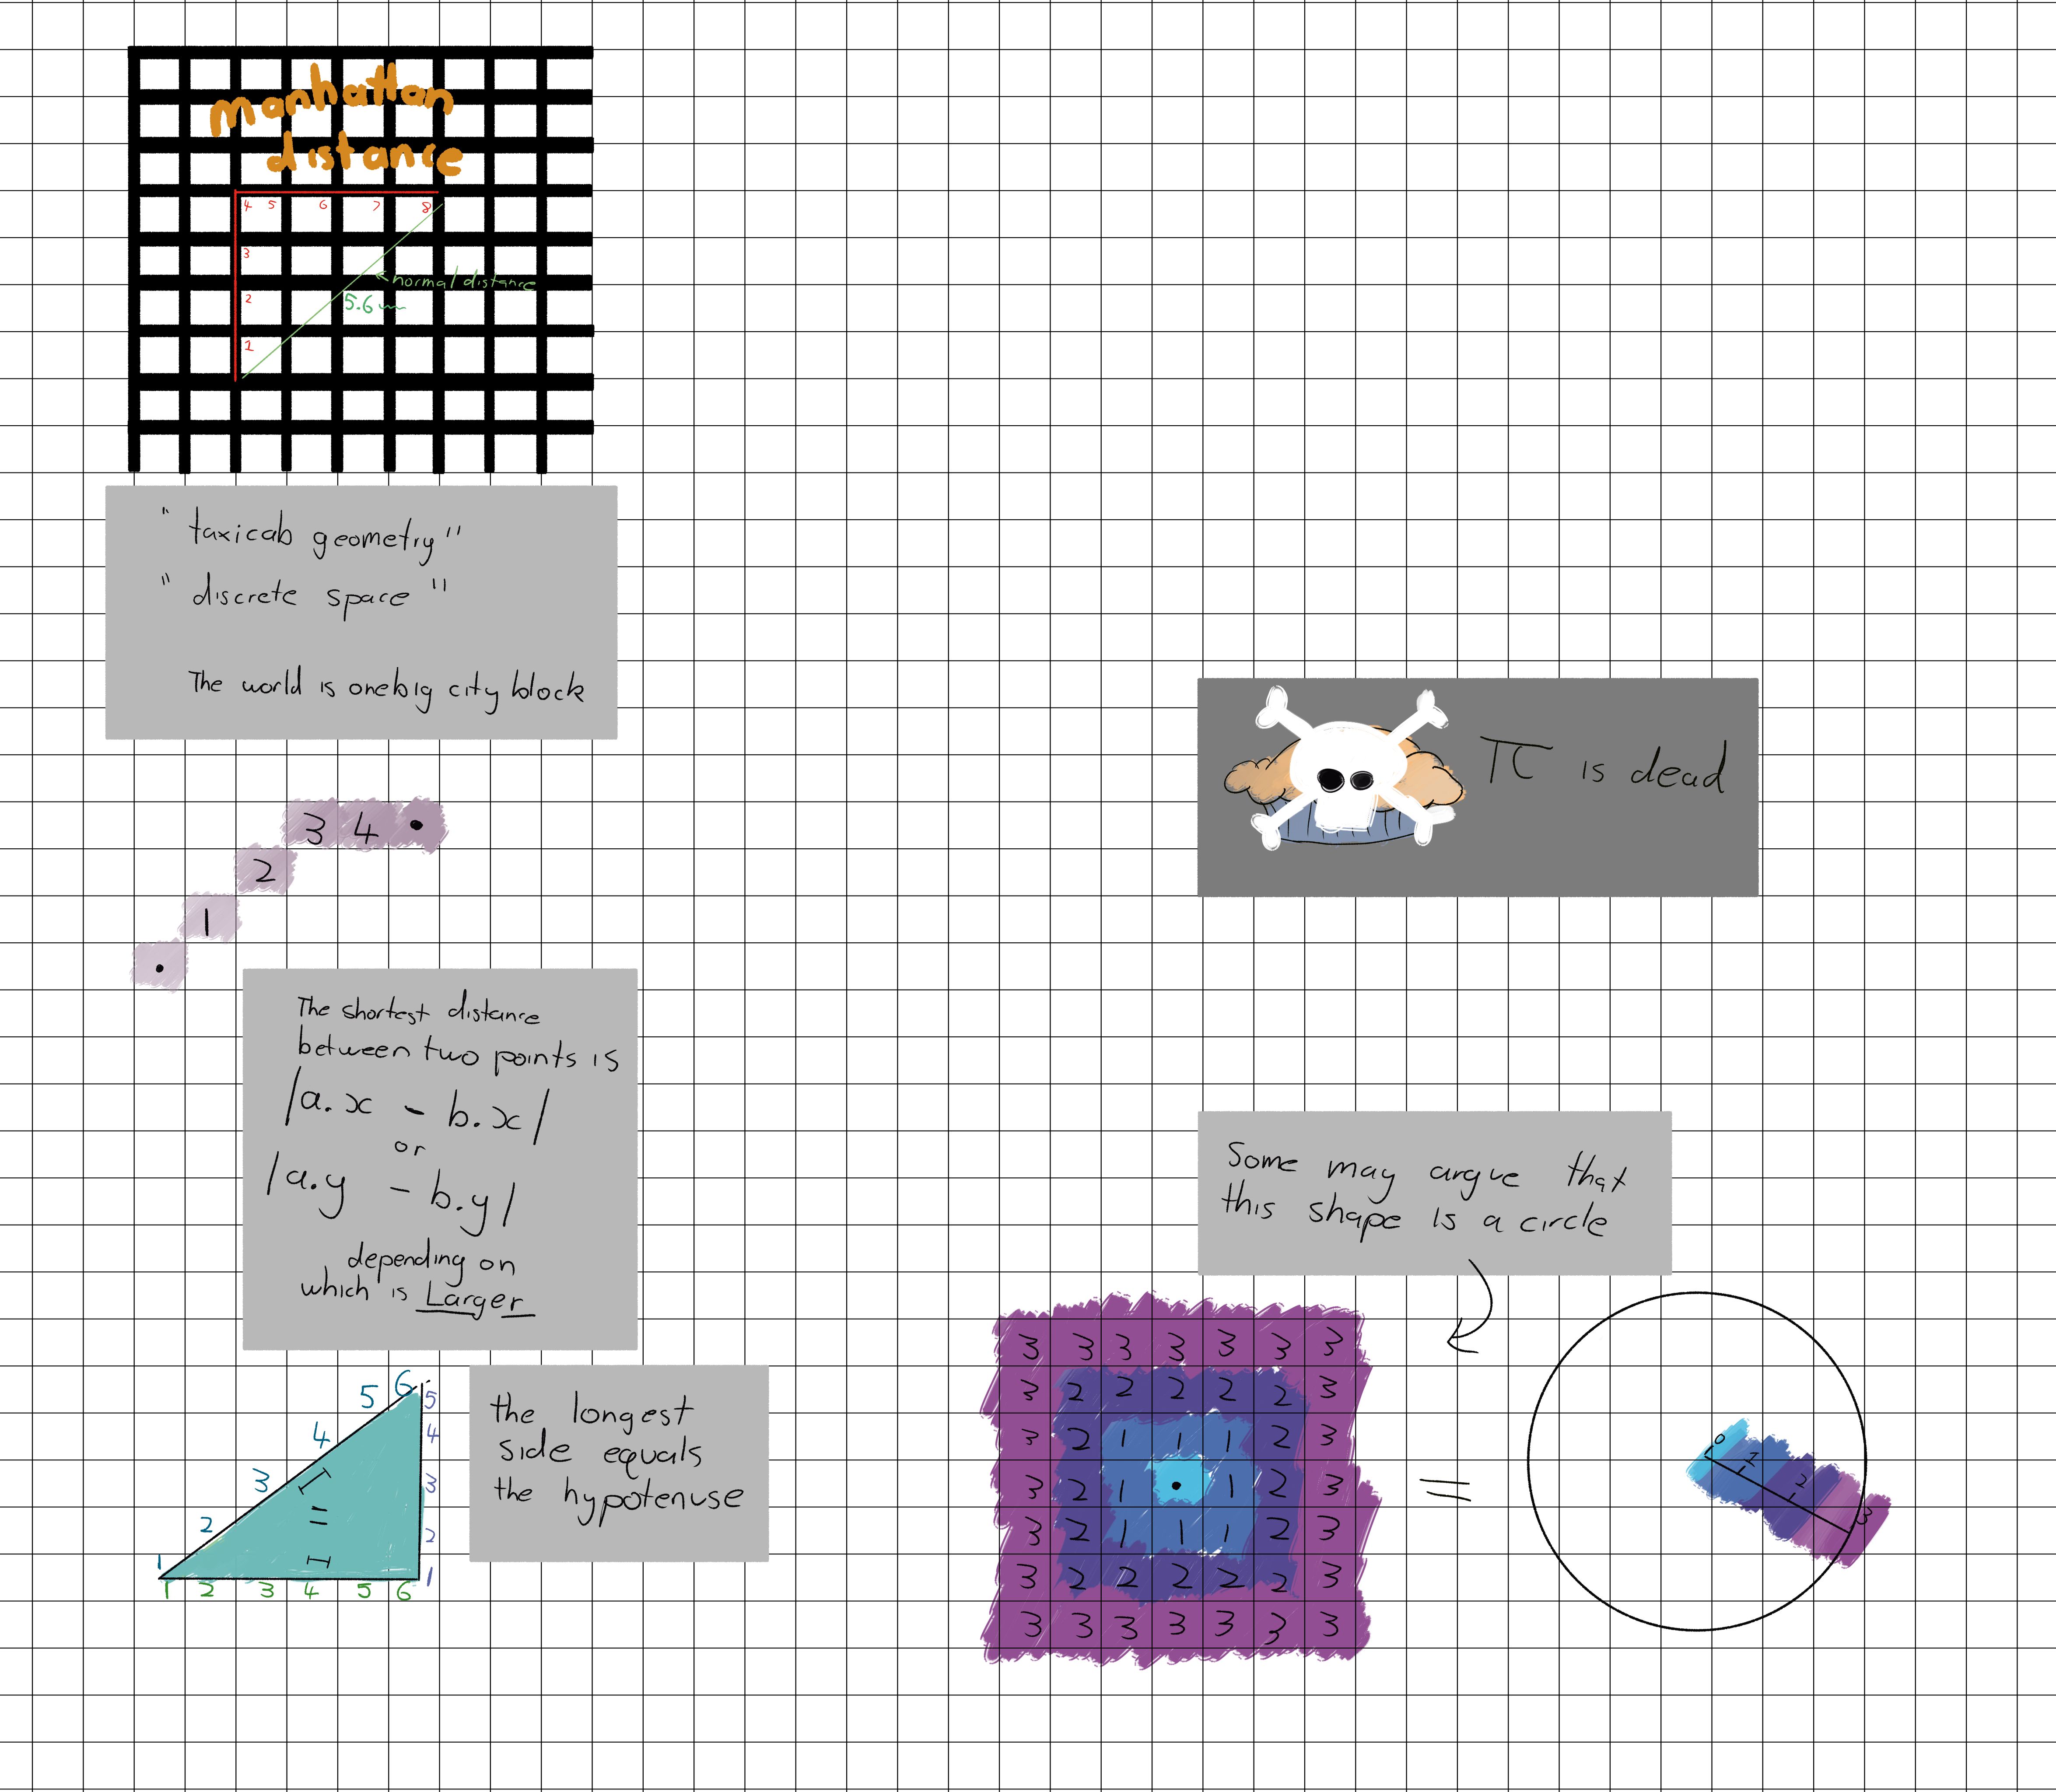 manhattan
distance
4 5 6 7 8
3
← normal distance
2
5.6
1
" taxicab geometry"
" discrete space "
The world is onebig city block
3 4
2
1
The shortest distance
between two points is
|a.x - b.x|
or
|a.y - b.y|
depending on
which is Larger
5 6 5
4 4
3 3
2 2
1 1
1 2 3 4 5 6
=
the longest
side equals
the hypotenuse
π is dead
Some may argue that
this shape is a circle
3 3 3 3 3 3 3
3 2 2 2 2 2 3
3 2 1 1 1 2 3
3 2 1 1 2 3
3 2 1 1 1 2 3
3 2 2 2 2 2 3
3 3 3 3 3 3 3
=
0 1 2 3